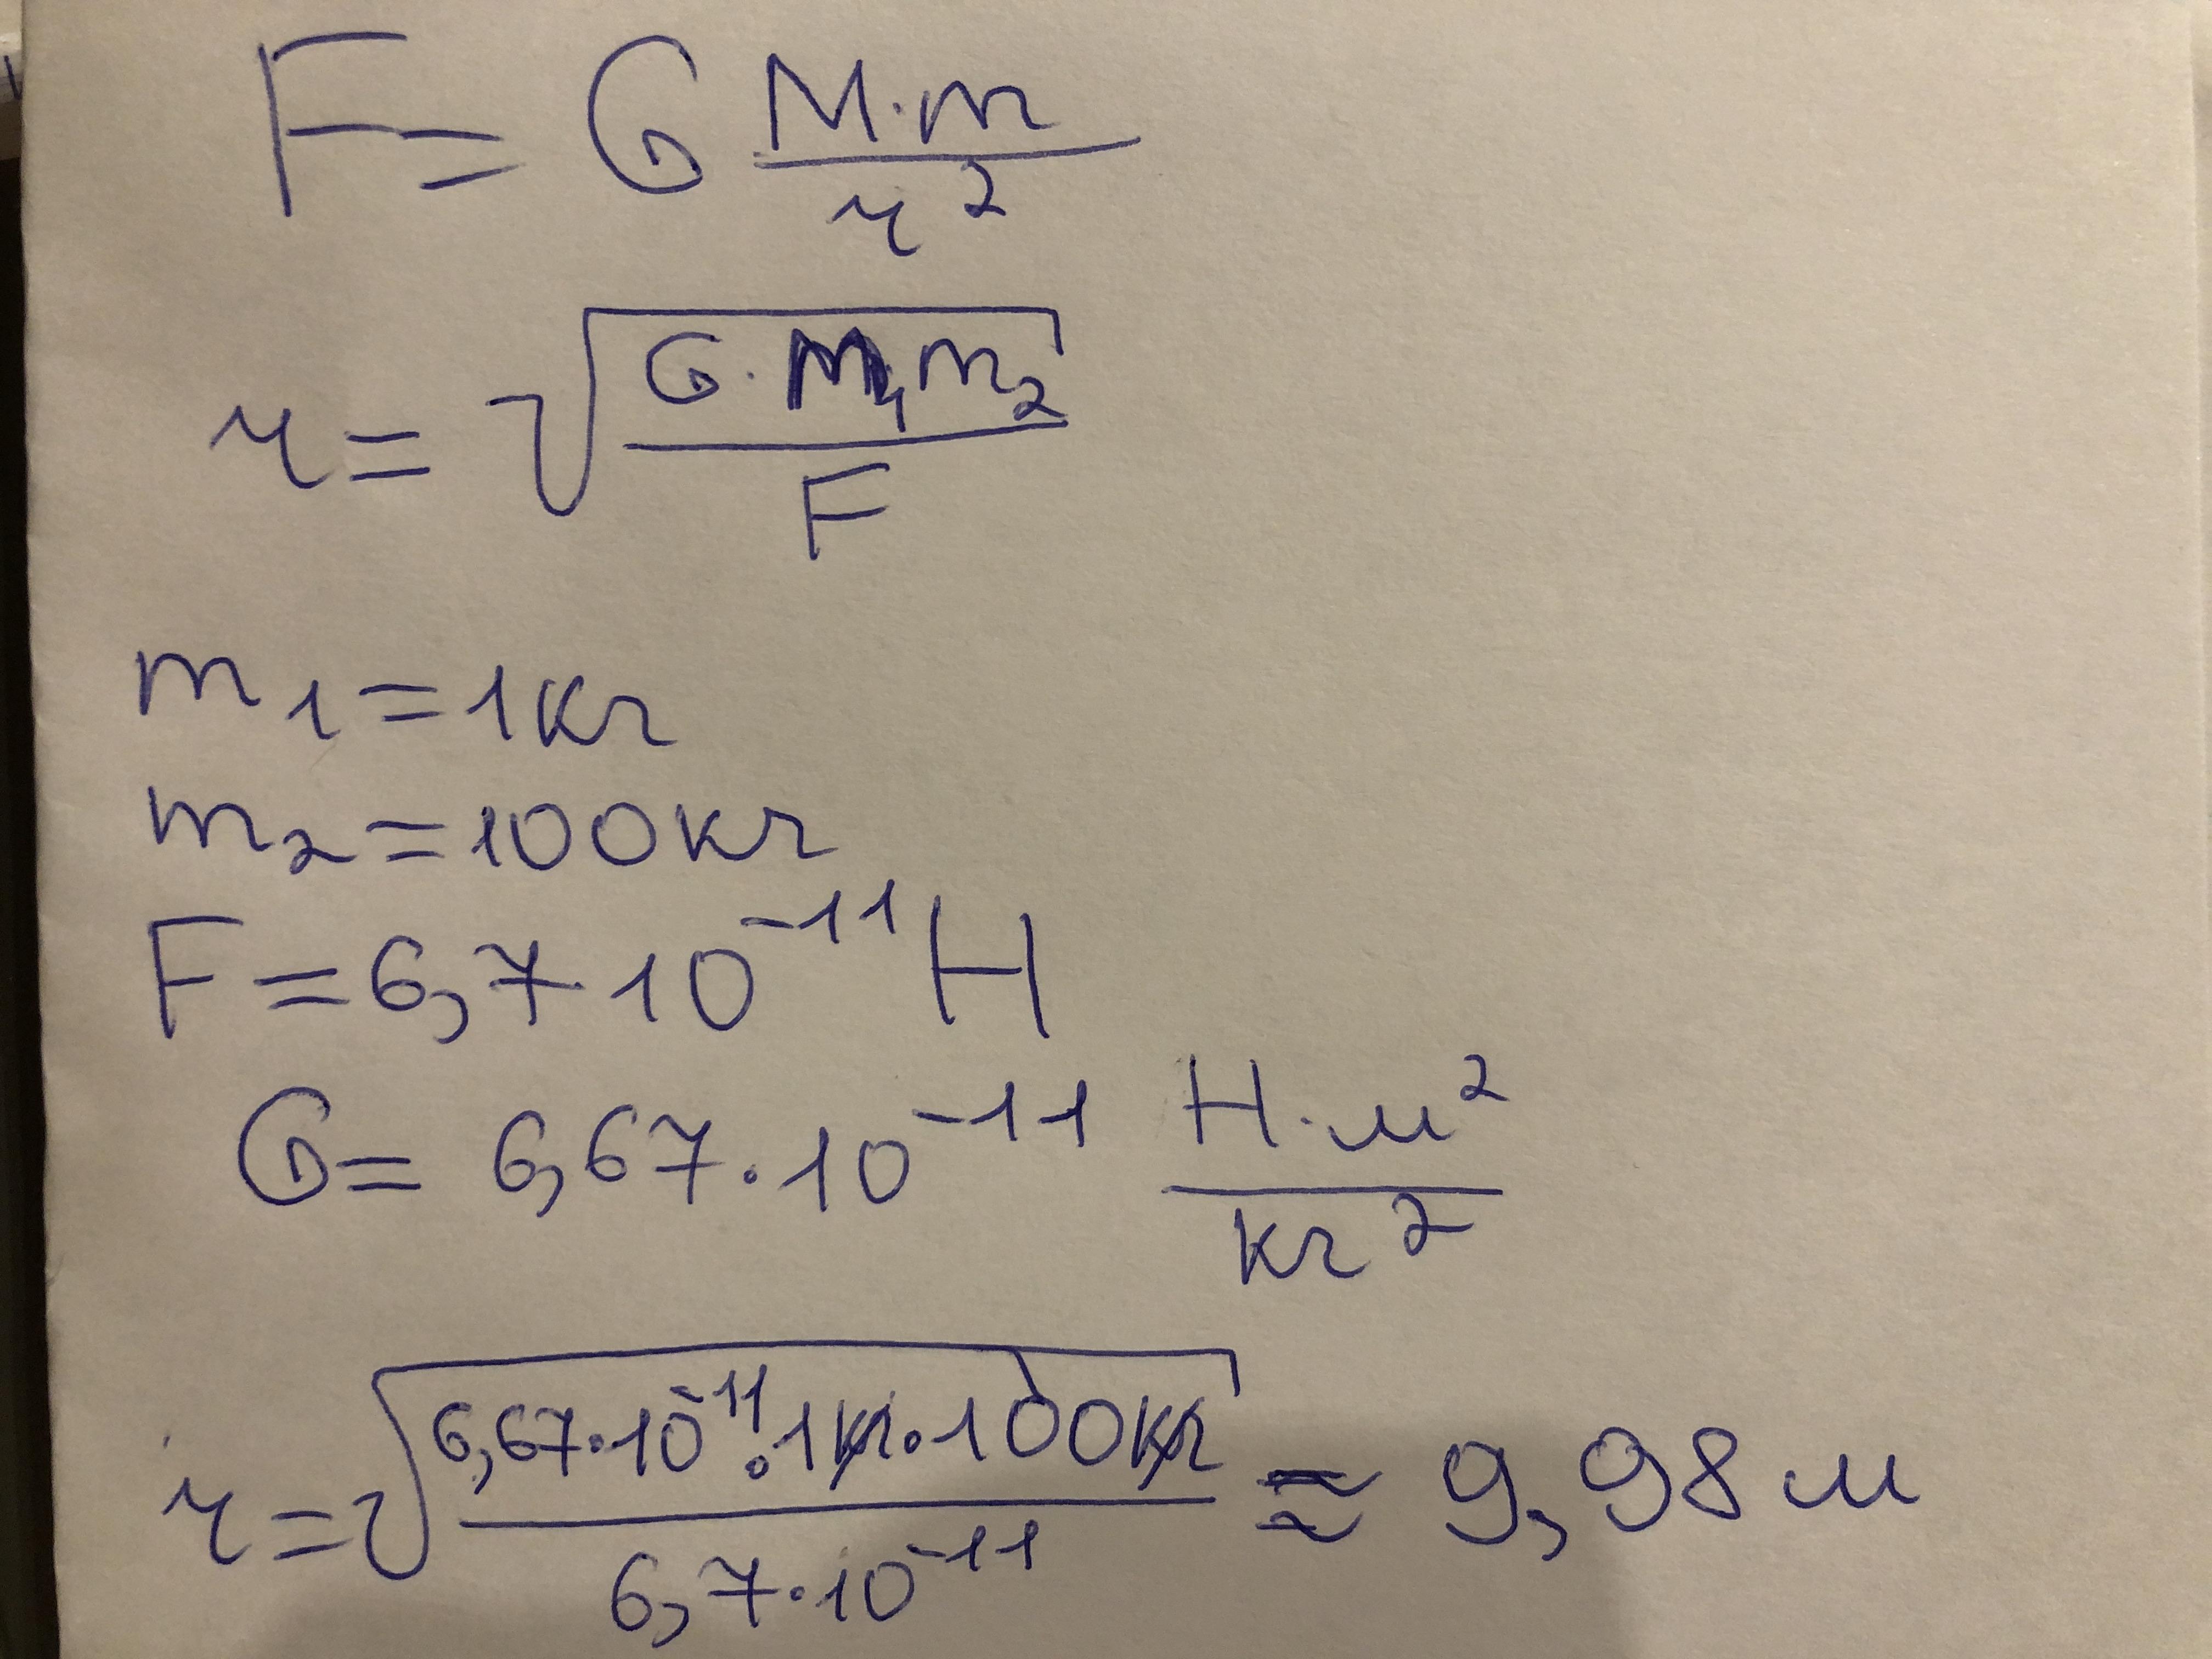 F = G M·m / r²
r = √(G·m₁m₂ / F)
m₁ = 1кг
m₂ = 100кг
F = 6,7·10⁻¹¹ Н
G = 6,67·10⁻¹¹ Н·м² / кг²
r = √(6,67·10⁻¹¹·1кг·100кг / 6,7·10⁻¹¹) ≈ 9,98 м